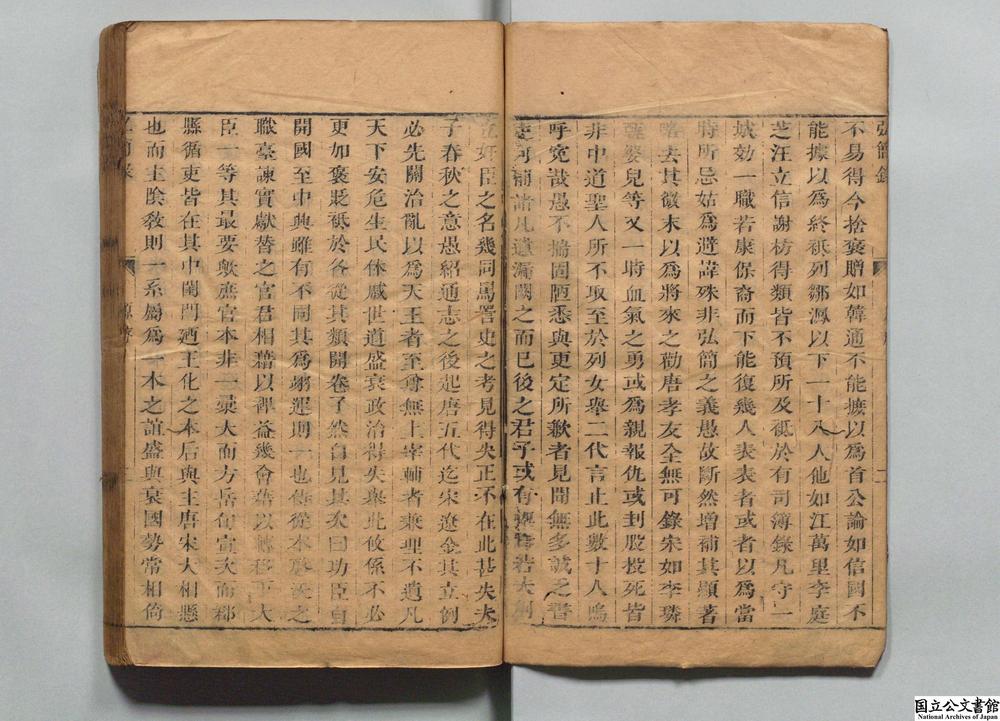 弘簡錄
不易得今捨褒贈如韓通不能摭以爲首公論如信國不
能據以爲終秪列鄒㵯以下一十八人他如江萬里李庭
芝汪立信謝枋得類皆不預所及秪於有司簿錄凡守一
城効一職若康保裔而下能復幾人表表者或者以爲當
時所忌姑爲避諱殊非弘簡之義愚故斷然增補其顯著
略去其微末以爲將來之勸唐孝友全無可錄宋如李璘
甄婆兒等又一時血氣之勇或爲親報仇或刲股投死皆
非中道聖人所不取至於列女舉二代言止此數十人嗚
呼寃哉愚不揣固陋悉與更定所歉者見聞無多誠之
何補諸凡遺漏闕之而已後之君子或有
奸臣之名幾同罵詈史之考見得失正不在此甚失夫
子春秋之意愚紹通志之後起唐五代迄宋遼金其立例
必先關治亂以爲天王者至尊無上宰輔者燮理不遺凡
天下安危生民休戚世道盛衰政治得失與此攸係不必
更加褒貶秪於各從其類開卷了然自見其次曰功臣自
開國至中興雖有不同其爲翊運則一也侍從本
職臺諫實獻替之官君相藉以裨益幾會藉以轉移于大
臣一等其最要歟庶官本非一彙大而方岳旬宣次而郡
縣循吏皆在其中閨門廼王化之本后與主唐宋大相懸
也而主陰敎則一系屬爲一本之誼盛與衰國勢常相倚
国立公文書館
National Archives of Japan